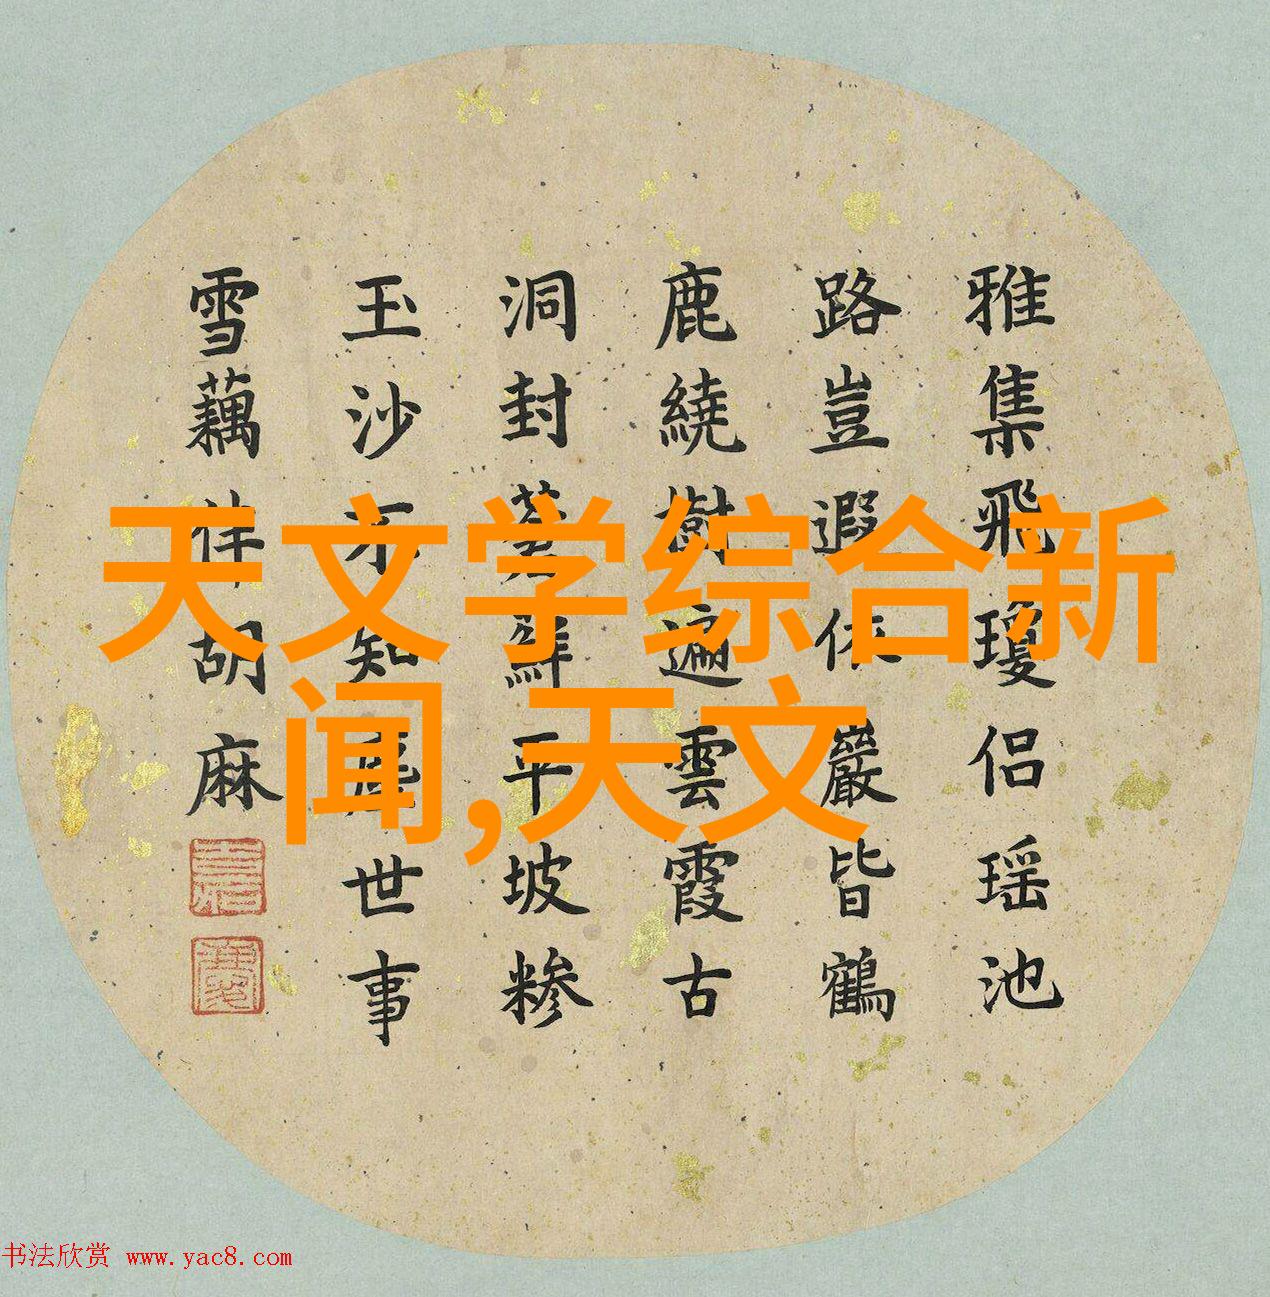 天文学综合新
闻,天文
雅集飛瓊侣瑶池
路豈遐依巖皆鶴
鹿繞樹遍雲霞古
洞封蘚平坡糁
玉沙不知世事
雪藕伴胡麻
书法欣赏 www.yac8.com